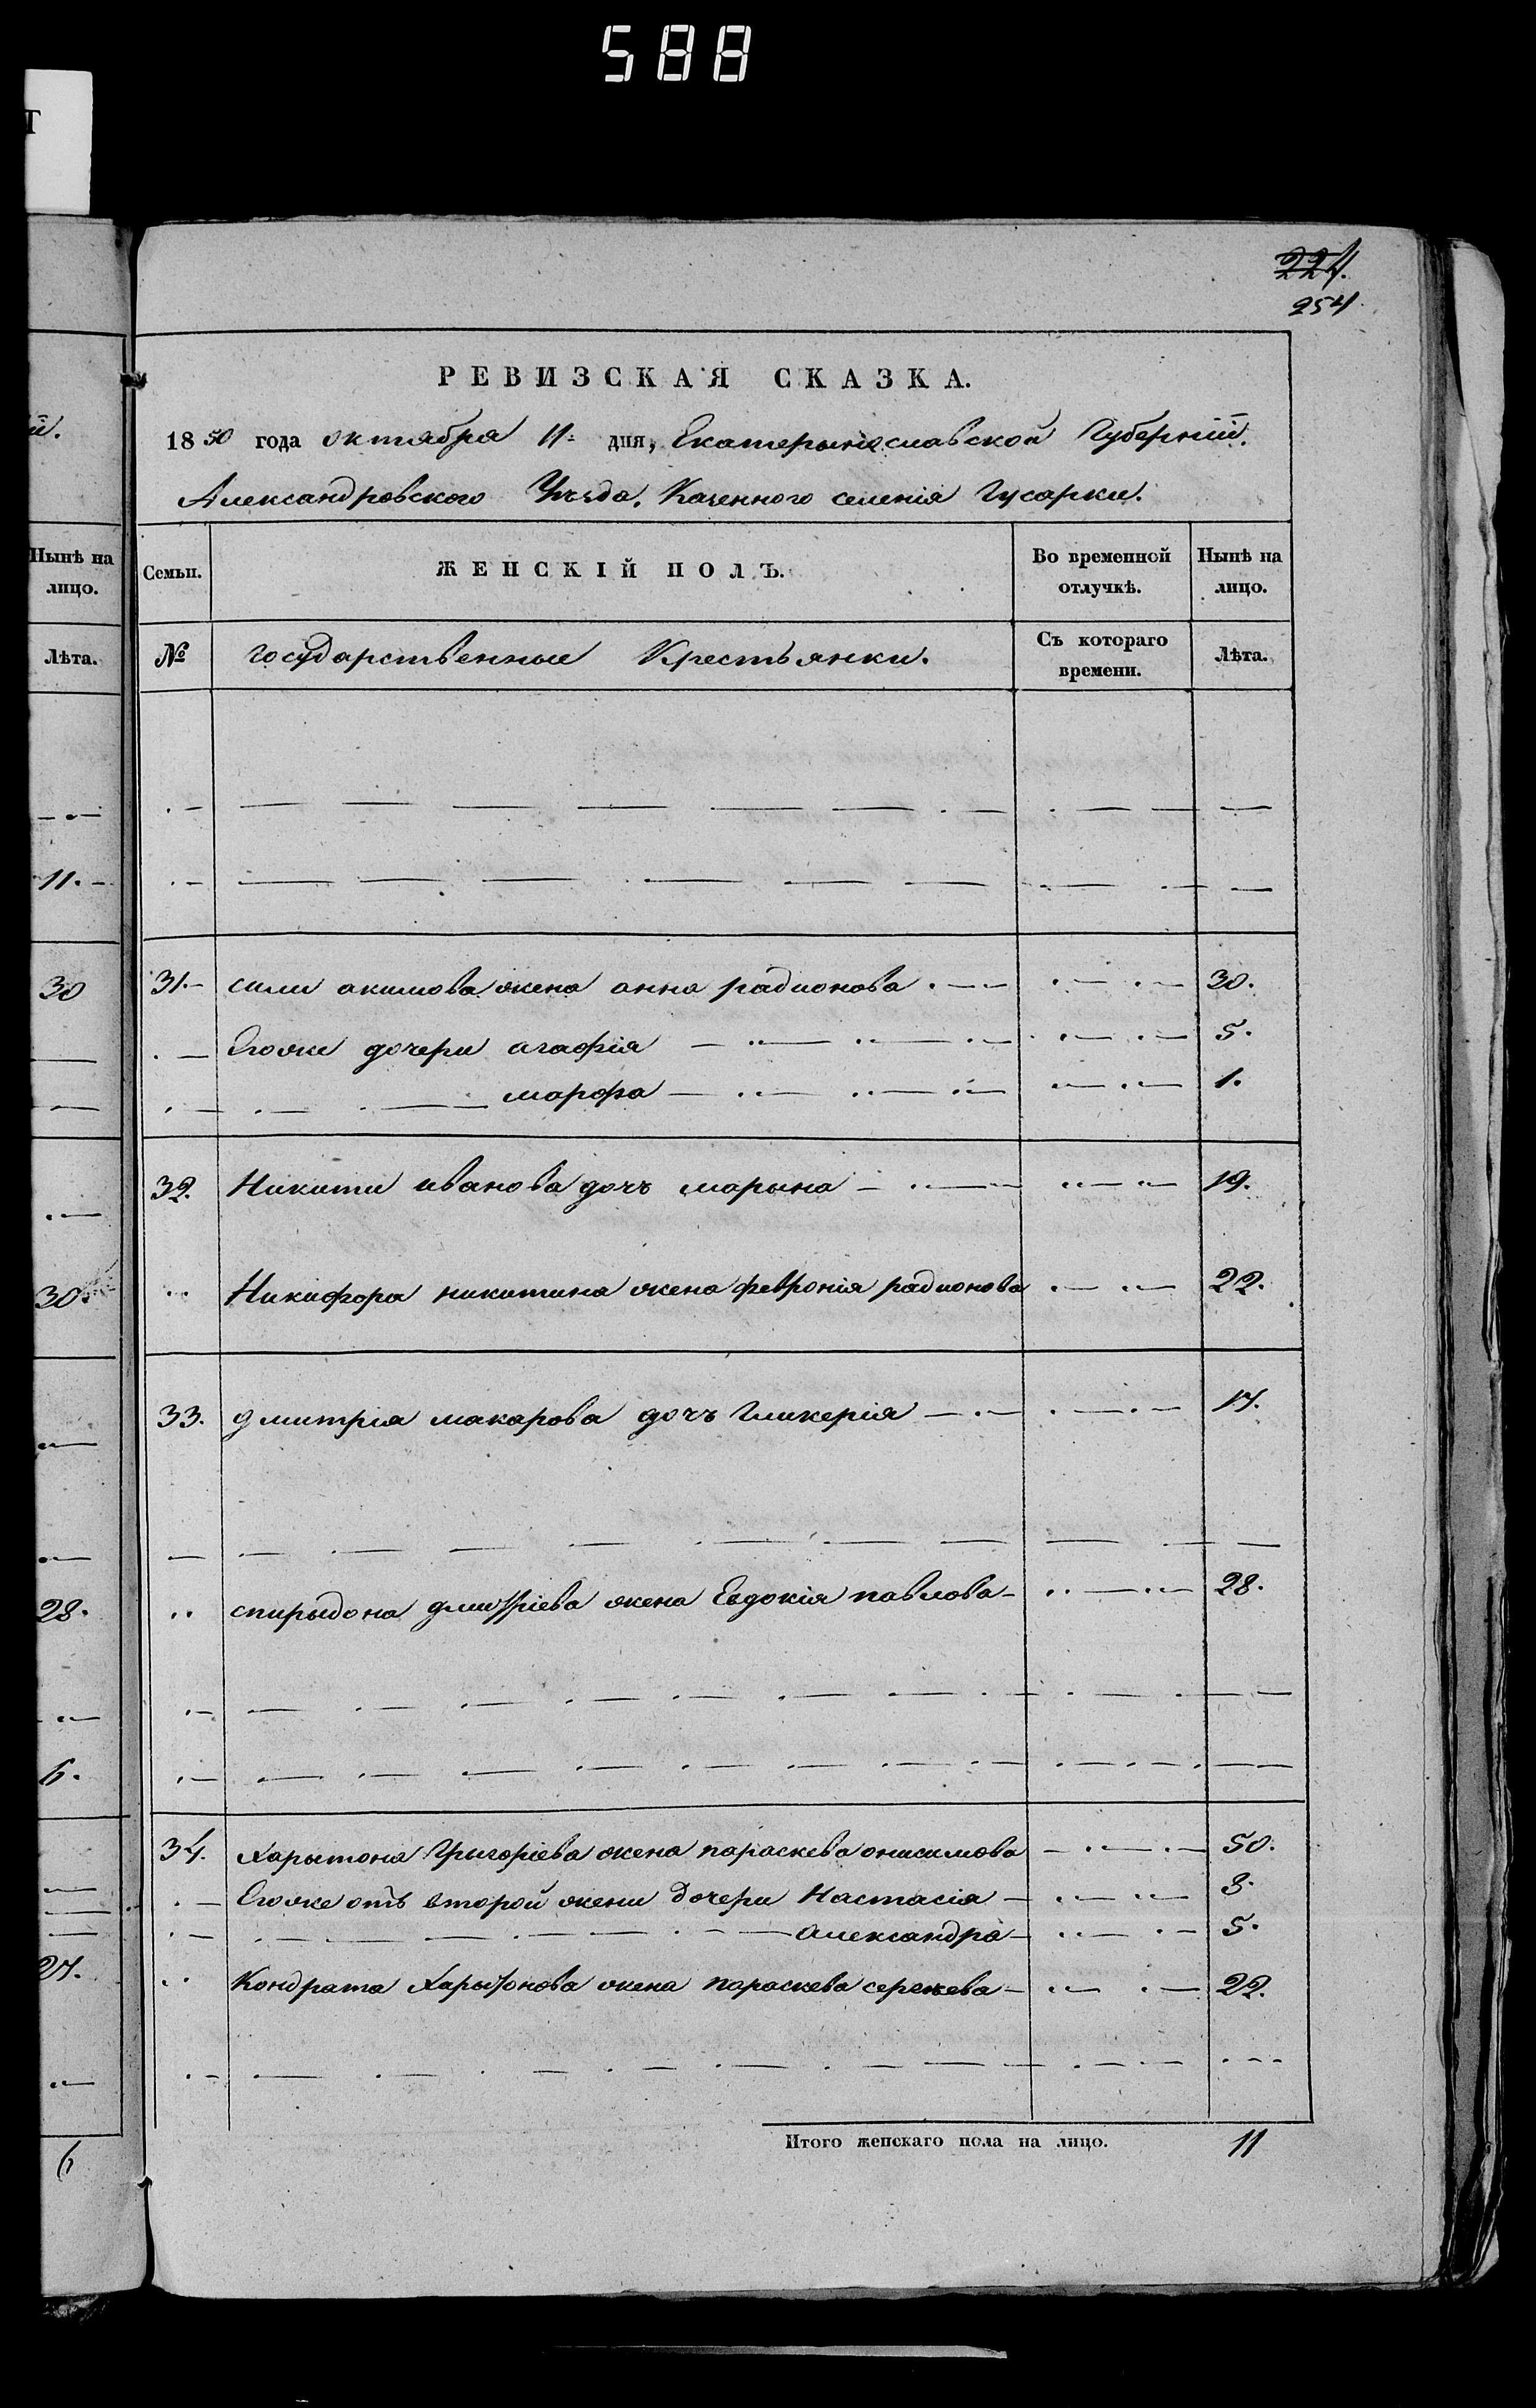 588
Т
224.
254
РЕВИЗСКАЯ СКАЗКА.
1850 года октября 11 дня, Екатерынославской Губерніи.
Александровского Уезда, Казенного селенія Гусарки.
Нынѣ на лицо.
Лѣта.
11.
30
30.
28.
6.
27.
6
Семьи. ЖЕНСКІЙ ПОЛЪ. Во временной отлучкѣ. Нынѣ на лицо.
№ Государственные Крестьянки. Съ котораго времени. Лѣта.
31. сили акимова жена анна радионова 30.
Егоже дочери агафія 5.
марфа 1.
32. Никити иванова дочъ марына 19.
Никифора никитина жена февронія радионова 22.
33. дмитрія макарова дочъ Гликерія 17.
спирыдона дмитріева жена Евдокія павлова 28.
34. Харытона Григоріева жена параскева онисимова 50.
Егоже отъ второй жени дочери Настасія 8.
Александра 5.
Кондрата Харытонова жена параскева сергеева 22.
Итого женскаго пола на лицо. 11